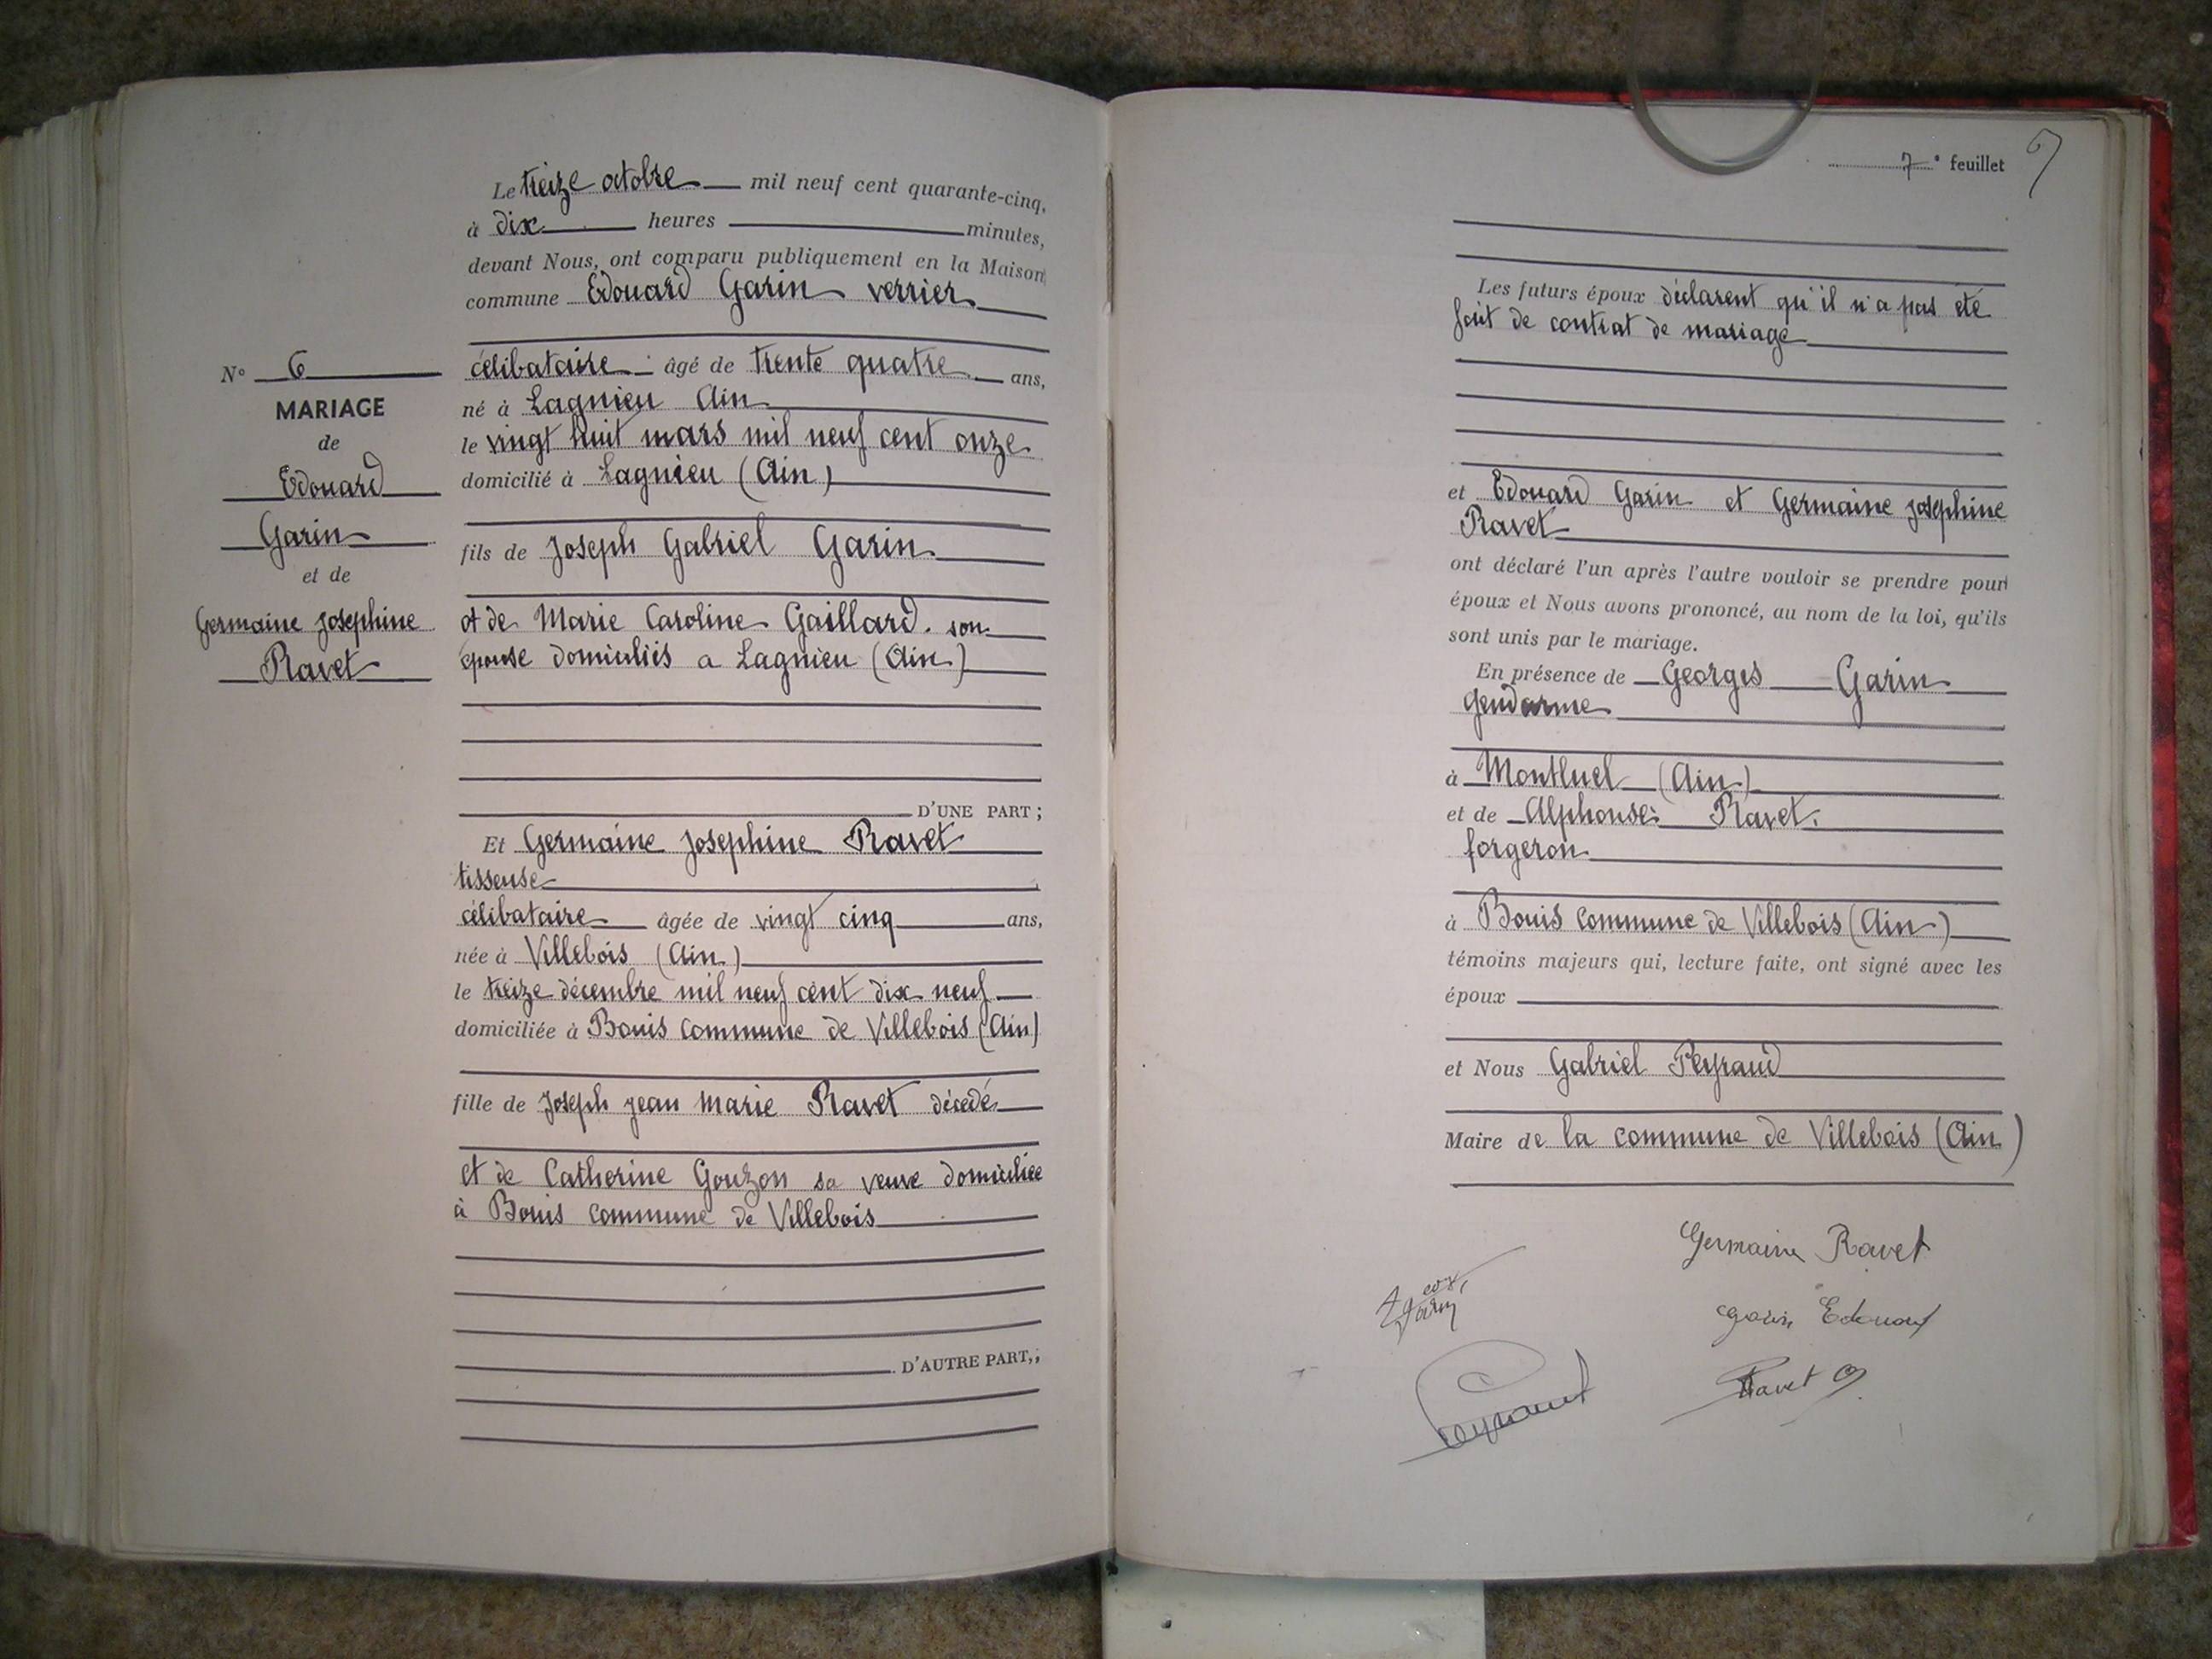 Le treize octobre mil neuf cent quarante-cinq,
à dix heures minutes,
devant Nous, ont comparu publiquement en la Maison
commune Edouard Garin verrier
célibataire âgé de trente quatre ans,
né à Lagnieu Ain
le vingt huit mars mil neuf cent onze
domicilié à Lagnieu (Ain)
fils de Joseph Gabriel Garin
et de Marie Caroline Gaillard. son
épouse domiciliés a Lagnieu (Ain)
D'UNE PART ;
Et Germaine Josephine Ravet
tisseuse
célibataire âgée de vingt cinq ans,
née à Villebois (Ain)
le treize décembre mil neuf cent dix neuf
domiciliée à Bouis commune de Villebois (Ain)
fille de Joseph Jean Marie Ravet décédé
et de Catherine Gouzon sa veuve domiciliée
à Bouis commune de Villebois
D'AUTRE PART,;
N° 6
MARIAGE
de
Edouard
Garin
et de
Germaine Josephine
Ravet
7e feuillet
Les futurs époux déclarent qu'il n'a pas été
fait de contrat de mariage
et Edouard Garin et Germaine Josephine
Ravet
ont déclaré l'un après l'autre vouloir se prendre pour
époux et Nous avons prononcé, au nom de la loi, qu'ils
sont unis par le mariage.
En présence de Georges Garin
gendarme
à Montluel (Ain)
et de Alphonse Ravet.
forgeron
à Bouis commune de Villebois (Ain)
témoins majeurs qui, lecture faite, ont signé avec les
époux
et Nous Gabriel Peyraud
Maire de la commune de Villebois (Ain)
Germaine Ravet
Garin Edouard
Ravet
Peyraud